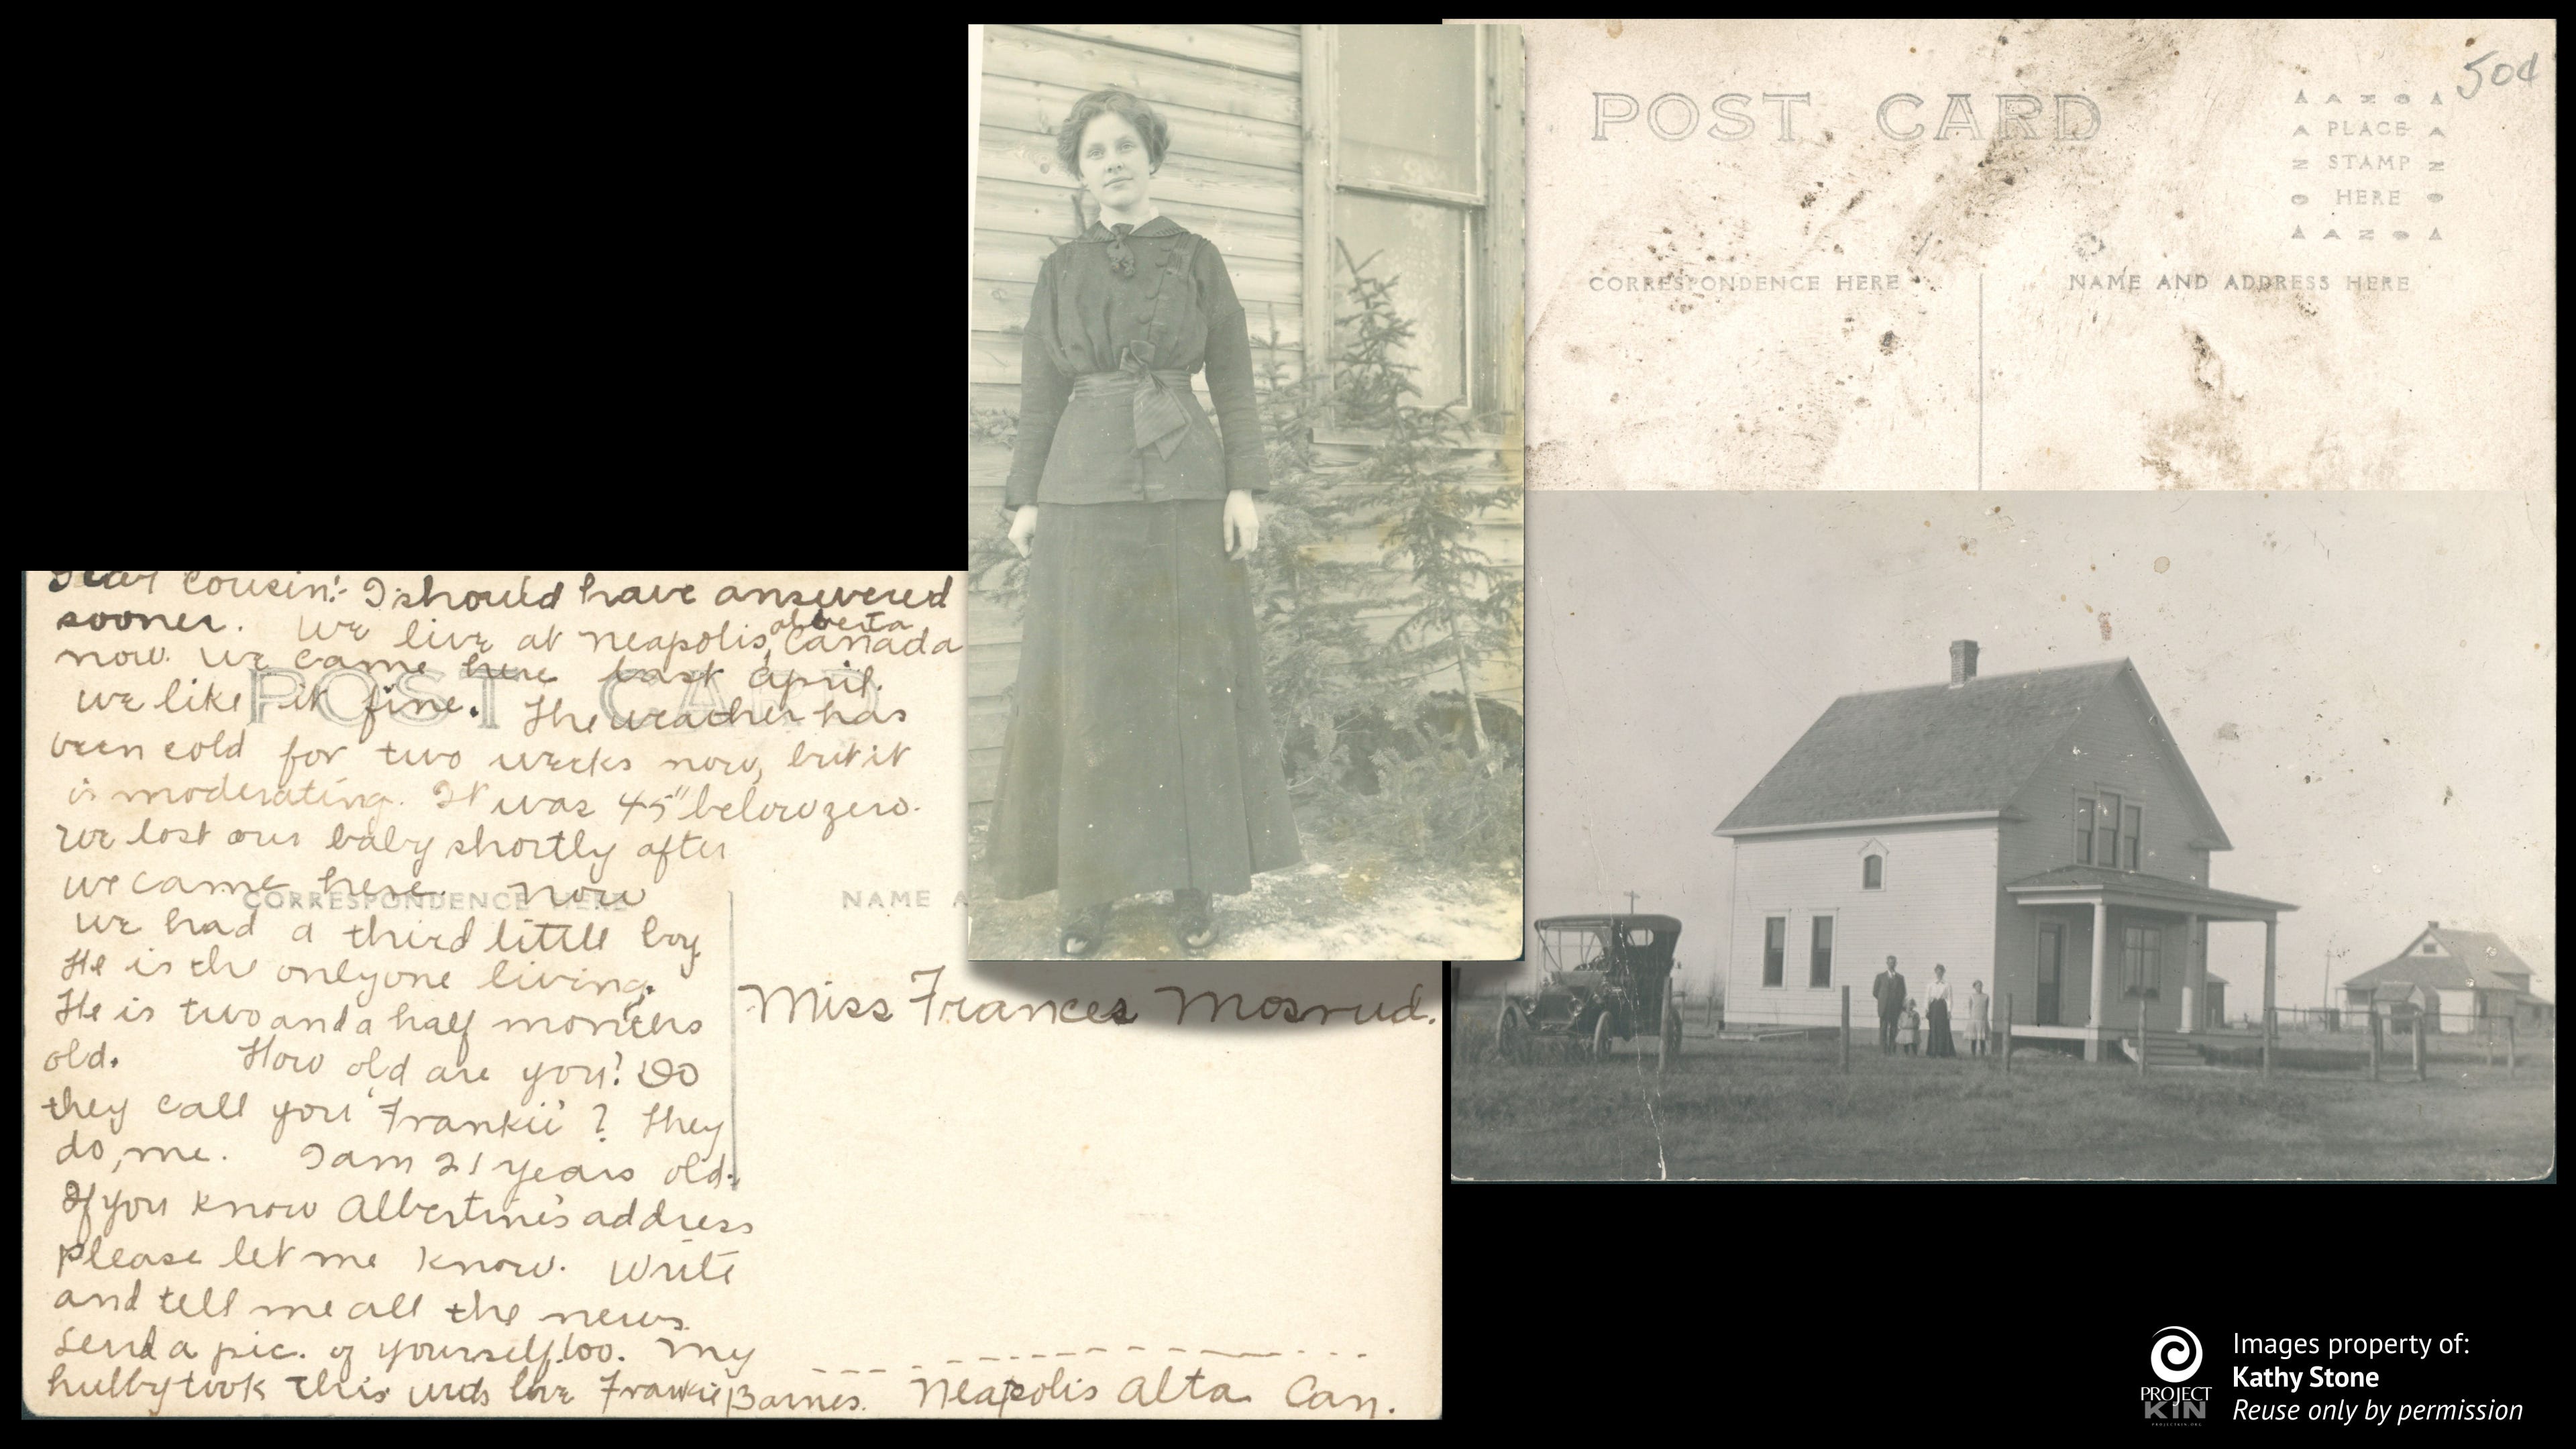 Dear Cousin:- I should have answered
sooner. We live at Neapolis, Alberta Canada
now. We came here last April.
We like it fine. The weather has
been cold for two weeks now, but it
is moderating. It was 45" below zero.
We lost our baby shortly after
we came here. Now
we had a third little boy
He is the only one living.
He is two and a half months
old. How old are you? Do
they call you 'Frankie'? They
do, me. I am 21 years old.
If you know Albertine's address
please let me know. Write
and tell me all the news.
Send a pic. of yourself too. My
hubby took this. Love Frankie Barnes.
Neapolis Alta. Can.
POST CARD
CORRESPONDENCE HERE
NAME A
Miss Frances Mosrud.
POST CARD
50¢
A AZO A
A PLACE A
Z STAMP Z
O HERE O
A AZO A
CORRESPONDENCE HERE
NAME AND ADDRESS HERE
PROJECT
KIN
PROJECTKIN.ORG
Images property of:
Kathy Stone
Reuse only by permission